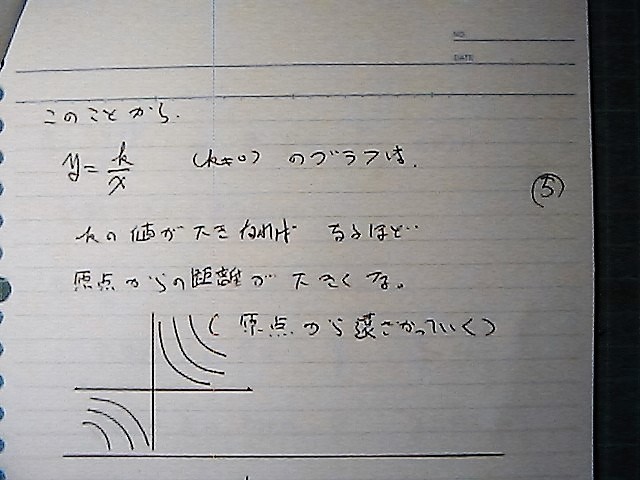 NO.
DATE
このことから.
y = k/x (k≠0) のグラフは.
(5)
kの値が大きければ するほど
原点からの距離が大きくな。
( 原点から遠ざかっていく)